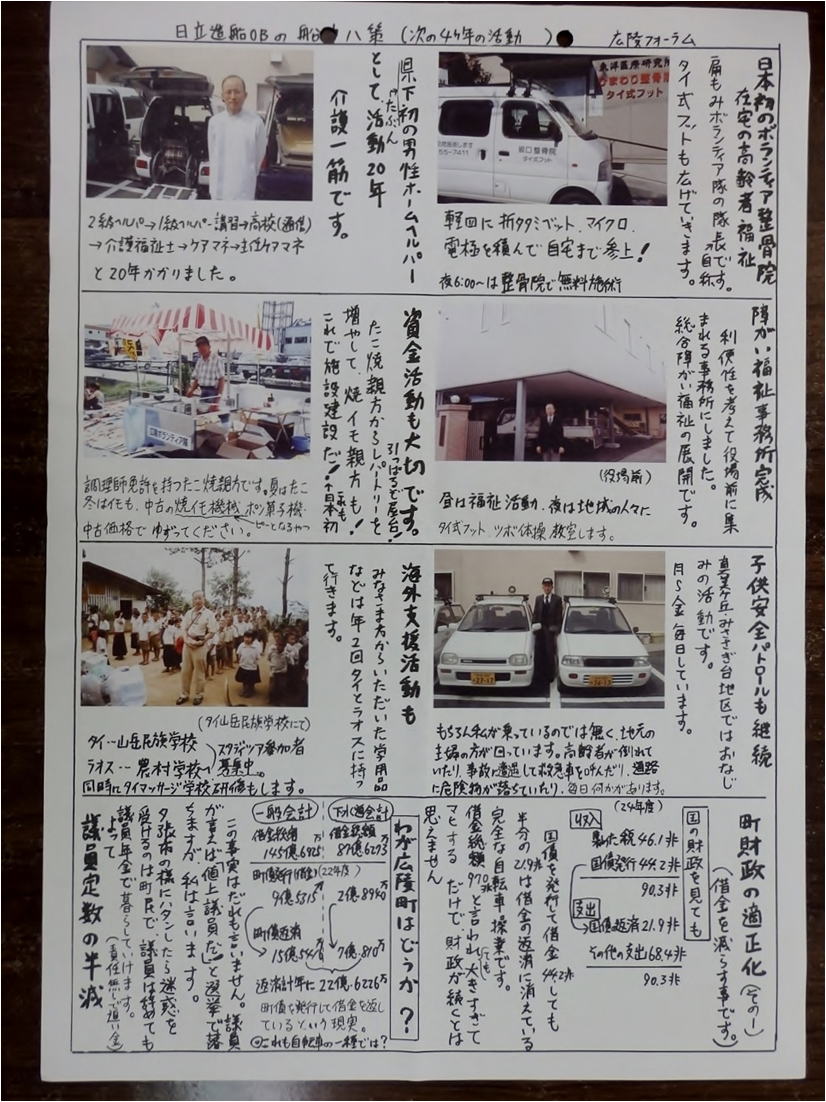 日立造船OBの船中八策(次の4ケ年の活動 ) 広陵フォーラム
日本初のボランティア整骨院
在宅の高齢者福祉
肩もみボランティア隊の隊長です。自称
タイ式フットも広げていきます。
東洋医療研究所
ひまわり整骨院
タイ式フット
55-7411
坂口整骨院
タイ式フット
軽四に折タタミベット、マイクロ
電極を積んで自宅まで参上!
夜6:00〜は整骨院で無料施術
県下初の男性ホームヘルパー
(たぶん)
として活動20年
介護一筋です。
2級ヘルパー→1級ヘルパー講習→高校(通信)
→介護福祉士→ケアマネ→主任ケアマネ
と20年かかりました。
障がい福祉事務所完成
利便性を考えて役場前に集
まれる事務所にしました。
総合障がい福祉の展開です。
(役場前)
昼は福祉活動、夜は地域の人々に
タイ式フット、ツボ体操教室します。
資金活動も大切です。
引っぱるぞ屋台!
たこ焼親方からレパートリーを
増やして、焼イモ親方も!
これで施設建設だ!
これも日本初
広陵ボランティア隊
調理師免許を持つたこ焼親方です。夏はたこ
冬はイモも、中古の焼イモ機械、ポン菓子機
ピーとなるやつ
中古価格でゆずってください。
子供安全パトロールも継続
真美ケ丘・みささぎ台地区ではおなじ
みの活動です。
月〜金毎日しています。
もちろん私が乗っているのでは無く、地元の
主婦の方が回っています。高齢者が倒れて
いたり、事故に遭遇して救急車を呼んだり、通路
に危険物が落ちていたり、毎日何かがあります。
海外支援活動も
みなさま方からいただいた学用品
などは年2回タイとラオスに持っ
て行きます。
(タイ山岳民族学校にて)
タイ…山岳民族学校
ラオス…農村学校
スタジツアー参加者
募集中。
同時にタイマッサージ学校研修もします。
町財政の適正化(その一)
(借金を減らす事です。)
国の財政を見ても
(24年度)
収入
新たな税46.1兆
国債発行44.2兆
90.3兆
支出
国債返済21.9兆
その他の支出68.4兆
90.3兆
国債を発行して借金44.2兆しても
半分の21.9兆は借金の返済に消えている
完全な自転車操業です。
借金総額970兆と言われ、大きすぎて
マヒするだけで、とても財政が続くとは
思えません
わが広陵町はどうか?
一般会計
下水道会計
借金総額
145億.6925万
借金総額
87億.6273万
町債発行(借金)(22年度)
9億.5315万
2億.8940万
町債返済
15億.5416万
7億.810万
返済計年に22億.6226万
町債を発行して借金を返し
ているという現実。
◎これも自転車の一種では?
この事実はだれも言いません。議員
が言えば「値上議員だ」と選挙で落
ちますが私は言います。
夕張市の様にハタンしたら迷惑を
受けるのは町民で、議員は辞めても
議員年金で暮らしていけます。
(責任無しで退い金)
よって
議員定数の半減